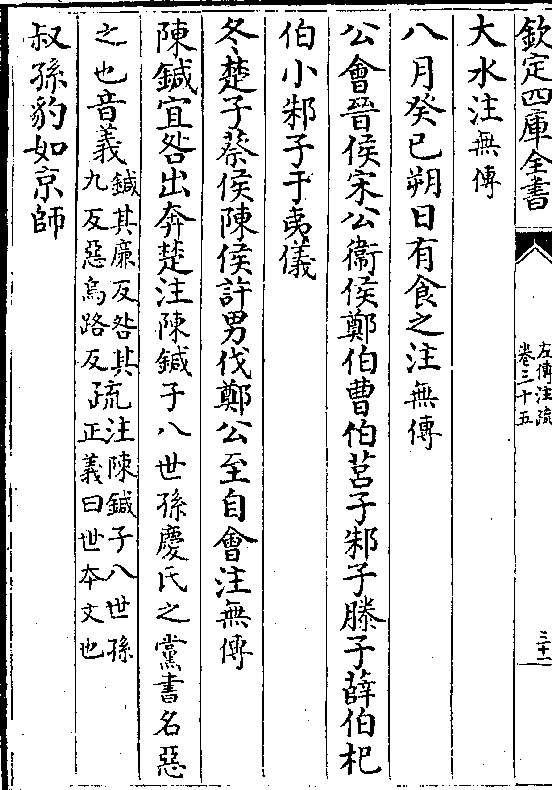 欽定四庫全書
左傳注疏
卷三十五
三十一
大水注無傳
八月癸巳朔日有食之注無傳
公會晉侯宋公衞侯鄭伯曹伯莒子邾子滕子薛伯杞
伯小邾子于夷儀
冬楚子蔡侯陳侯許男伐鄭公至自會注無傳
陳鍼宜咎出奔楚注陳鍼子八世孫慶氏之黨書名惡
之也音義鍼其廉反咎其九反惡烏路反疏注陳鍼子八世孫正義曰世本文也
叔孫豹如京師